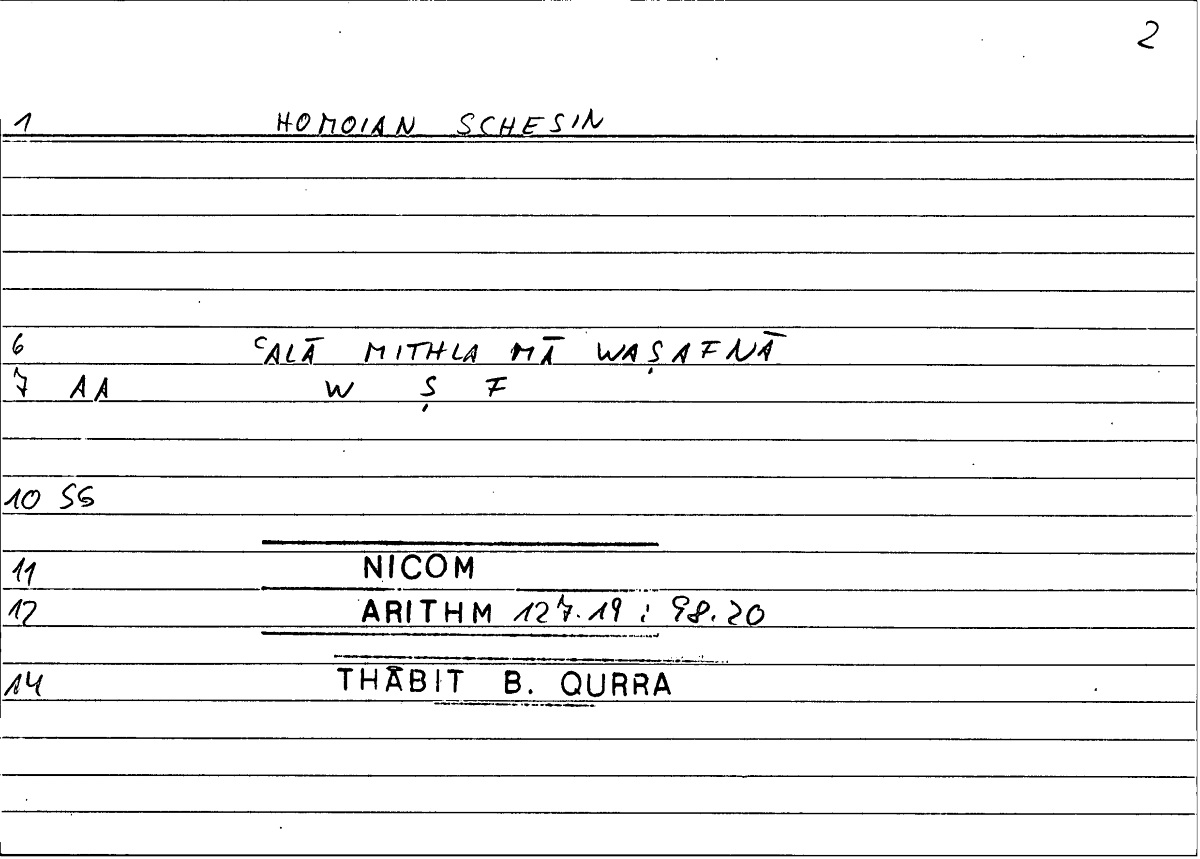 2
1 HOMOIAN SCHESIN
6 ʿALĀ MITHLA MĀ WAṢAFNĀ
7 AA W Ṣ F
10 SS
11 NICOM
12 ARITHM 127.19 : 98.20
14 THĀBIT B. QURRA